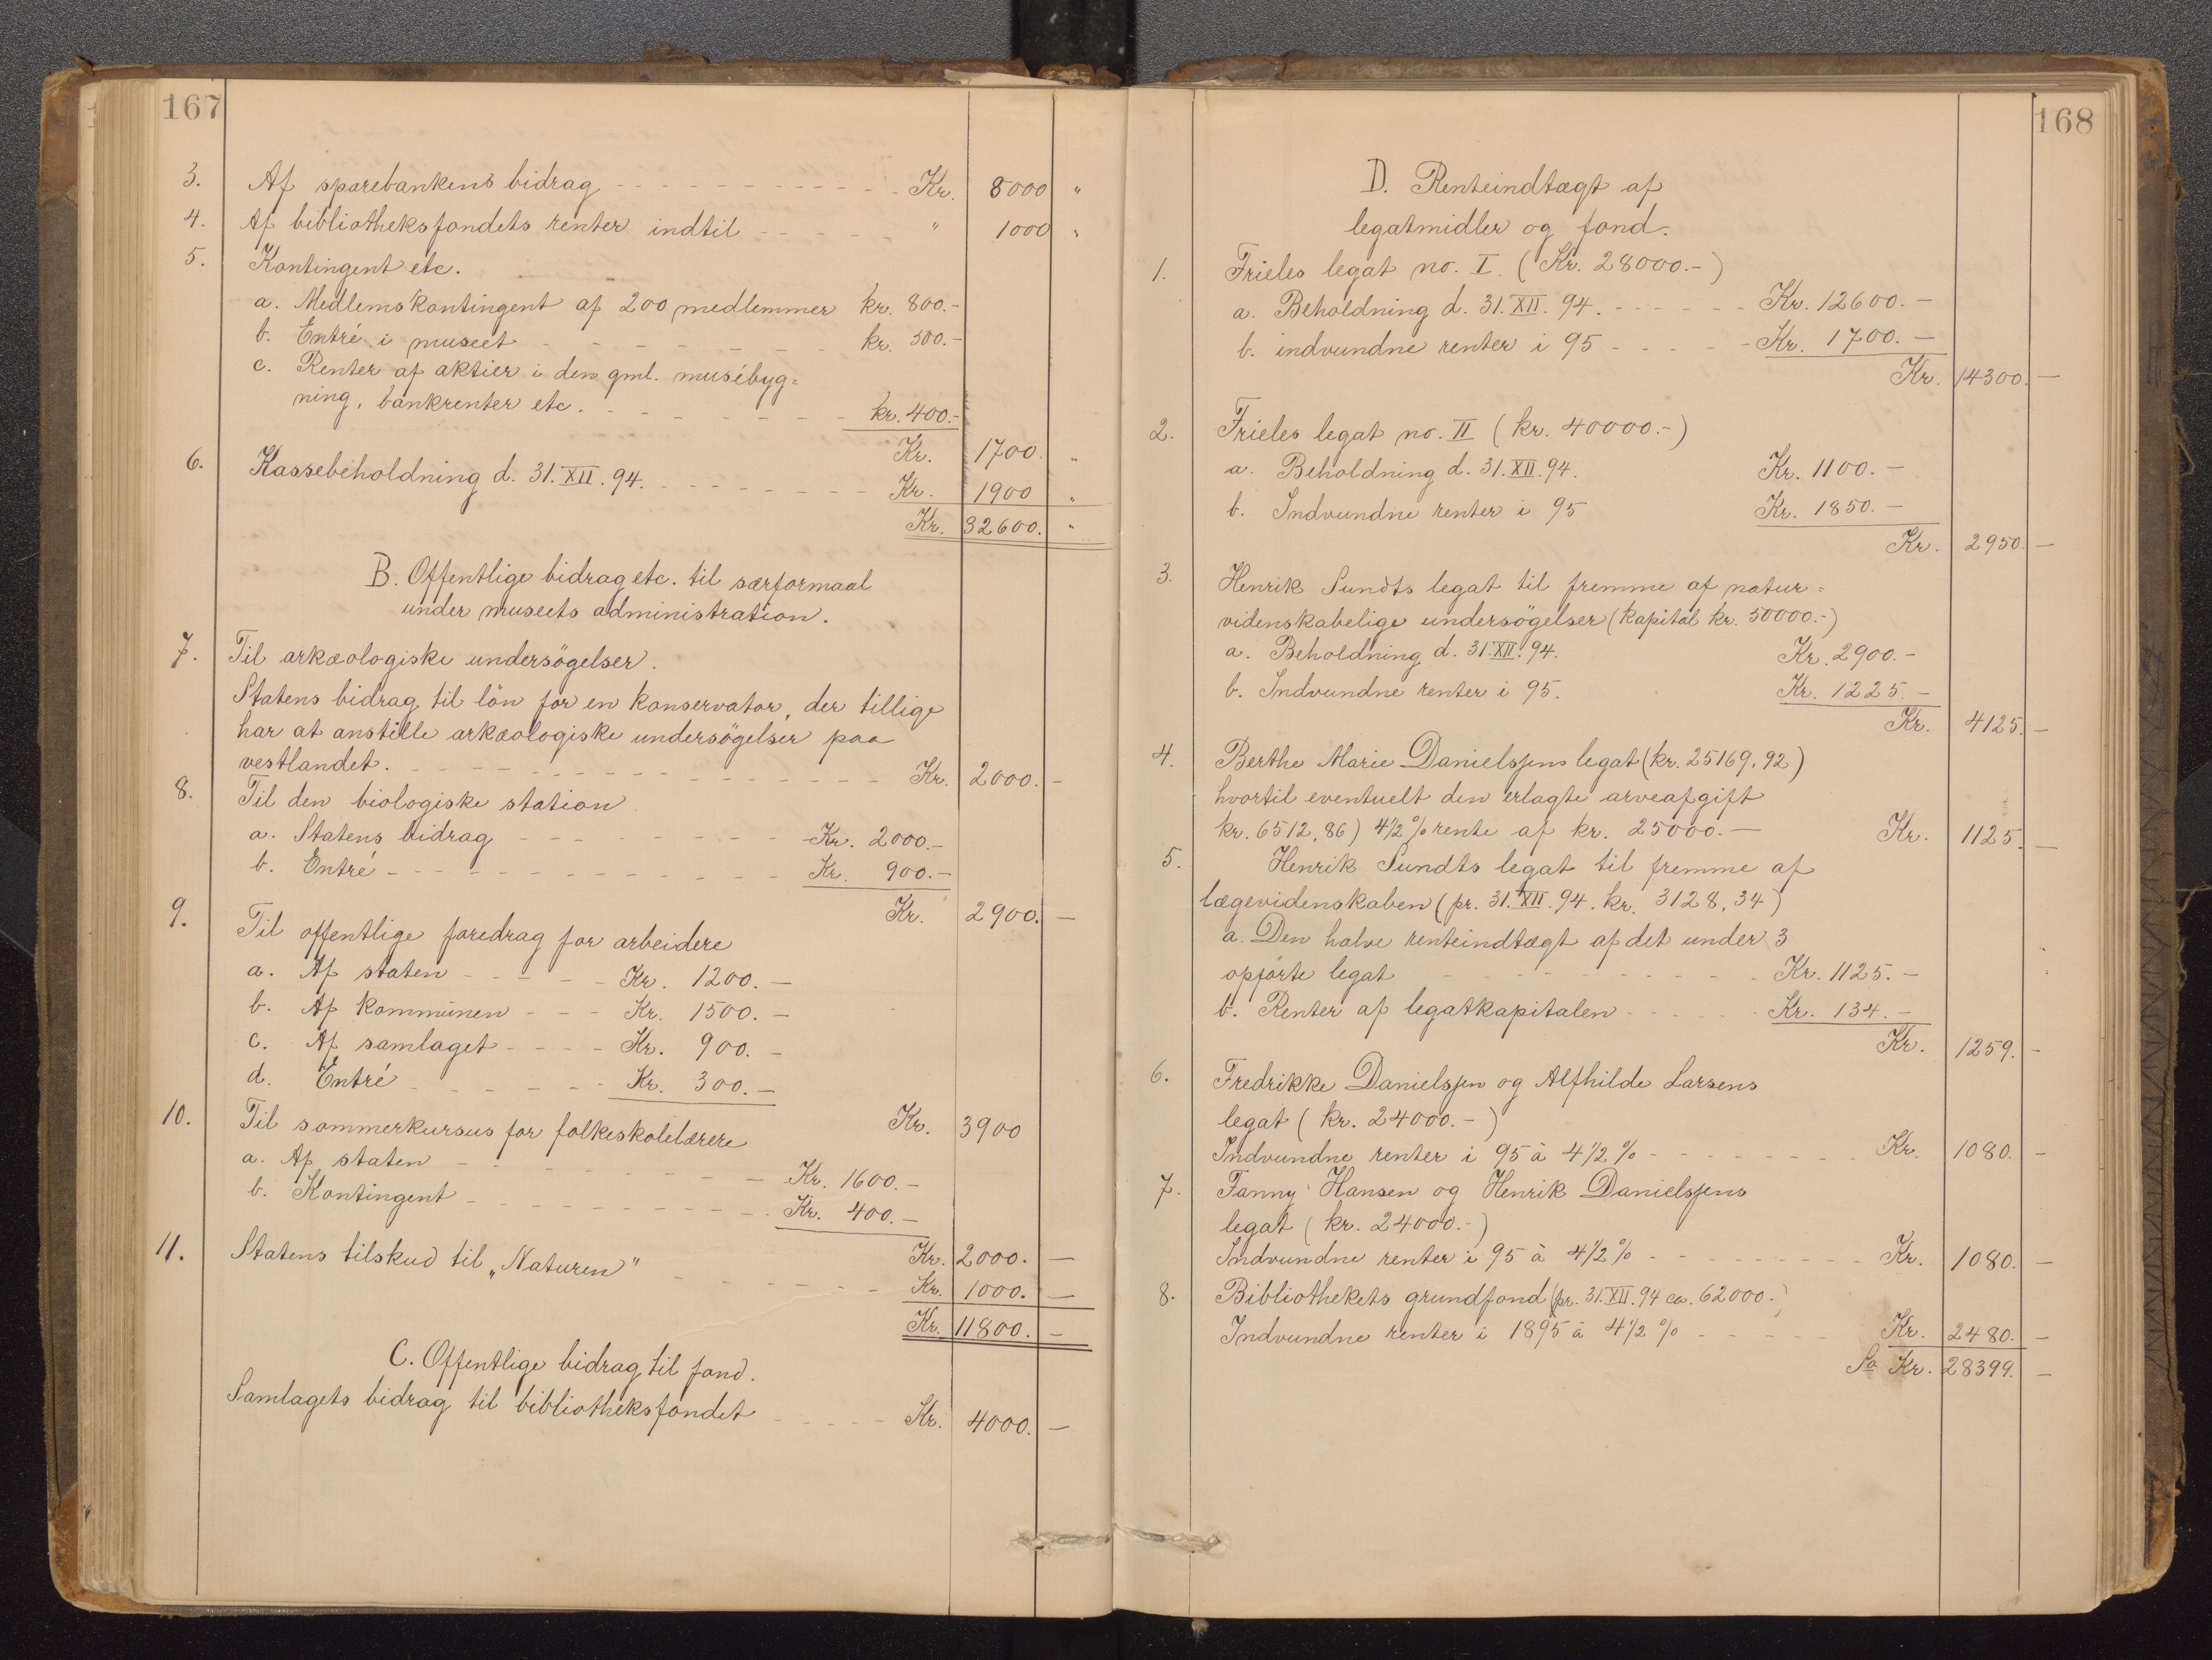 167
3. Af sparebankens bidrag Kr. 8000 "
4. Af bibliotheksfondets renter indtil " 1000 "
5. Kontingent etc.
a. Medlemskontingent af 200 medlemmer kr. 800.-
b. Entré i museet kr. 500.-
c. Renter af aktier i den gml. musébyg=
ning, bankrenter etc. kr. 400.-
Kr. 1700. "
6. Kassebeholdning d. 31.XII.94. Kr. 1900 "
Kr. 32600. "
B. Offentlige bidrag etc. til særformaal
under museets administration.
7. Til arkæologiske undersögelser.
Statens bidrag til lön for en konservator, der tillige
har at anstille arkæologiske undersögelser paa
vestlandet. Kr. 2000. -
8. Til den biologiske station
a. Statens bidrag Kr. 2000.-
b. Entré Kr. 900.-
Kr. 2900. -
9. Til offentlige foredrag for arbeidere
a. Af staten Kr. 1200.-
b. Af kommunen Kr. 1500.-
c. Af samlaget Kr. 900.-
d. Entré Kr. 300.-
Kr. 3900
10. Til sommerkursus for folkeskolelærere
a. Af staten Kr. 1600.-
b. Kontingent Kr. 400.-
Kr. 2000. -
11. Statens tilskud til „Naturen" Kr. 1000. -
Kr. 11800. -
C. Offentlige bidrag til fond.
Samlagets bidrag til bibliotheksfondet Kr. 4000. -
168
D. Renteindtægt af
legatmidler og fond.
1. Frieles legat no. I. (Kr. 28000.-)
a. Beholdning d. 31.XII.94. Kr. 12600.-
b. indvundne renter i 95 Kr. 1700.-
Kr. 14300. -
2. Frieles legat no. II (kr. 40000.-)
a. Beholdning d. 31.XII.94. Kr. 1100.-
b. Indvundne renter i 95 Kr. 1850.-
Kr. 2950. -
3. Henrik Sundts legat til fremme af natur=
videnskabelige undersögelser (kapital kr. 50000.-)
a. Beholdning d. 31.XII.94. Kr. 2900.-
b. Indvundne renter i 95. Kr. 1225.-
Kr. 4125. -
4. Berthe Marie Danielssens legat (kr. 25169.92)
hvortil eventuelt den erlagte arveafgift
kr. 6512,86) 4½% rente af kr. 25000.- Kr. 1125. -
5. Henrik Sundts legat til fremme af
lægevidenskaben (pr. 31.XII.94. kr. 3128,34)
a. Den halve renteindtægt af det under 3
opförte legat Kr. 1125.-
b. Renter af legatkapitalen Kr. 134.-
Kr. 1259. -
6. Fredrikke Danielssen og Alfhilde Larsens
legat (kr. 24000.-)
Indvundne renter i 95 à 4½% Kr. 1080. -
7. Fanny Hansen og Henrik Danielssens
legat (kr. 24000.-)
Indvundne renter i 95 à 4½% Kr. 1080. -
8. Bibliothekets grundfond (pr. 31.XII.94 ca. 62000.)
Indvundne renter i 1895 à 4½% Kr. 2480. -
Sa Kr. 28399. -